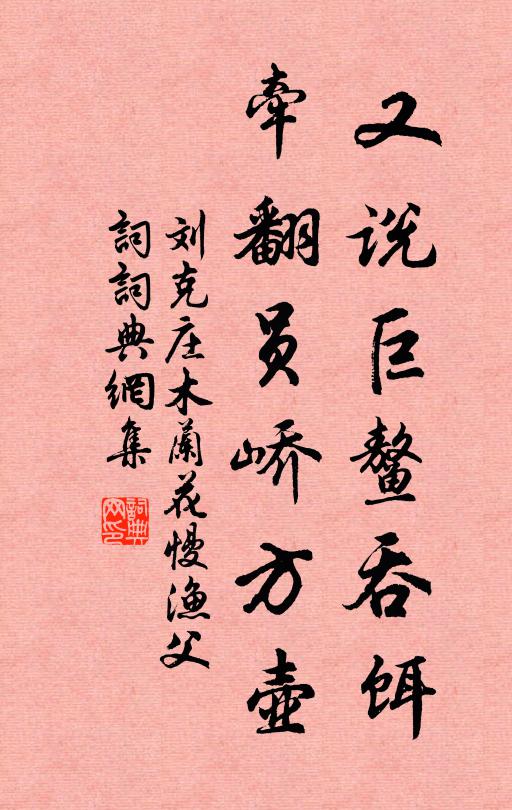 又说巨鳌吞饵
牵翻员峤方壶
刘克庄木蘭花慢漁父
詞詞典網集
詞典网印